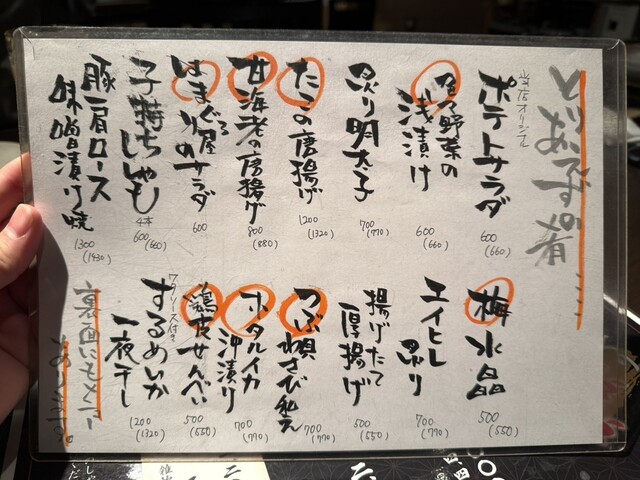 とりあえず肴....
当店オリジナル
ポテトサラダ
600
(660)
色々野菜の
浅漬け
600
(660)
炙り明太子
700
(770)
たこの唐揚げ
1200
(1320)
甘海老の唐揚げ
800
(880)
はまぐろ屋
サラダ
600
子持ちししゃも
4本
600
(660)
豚肩ロース
味噌漬け焼
1300
(1430)
梅水晶
500
(550)
エイヒレ
炙り
700
(770)
揚げたて
厚揚げ
500
(550)
つぶ貝
わさび和え
700
(770)
ホタルイカ
沖漬け
700
(770)
鶏皮せんべい
500
(550)
するめいか
一夜干し
1200
(1320)
裏面にも